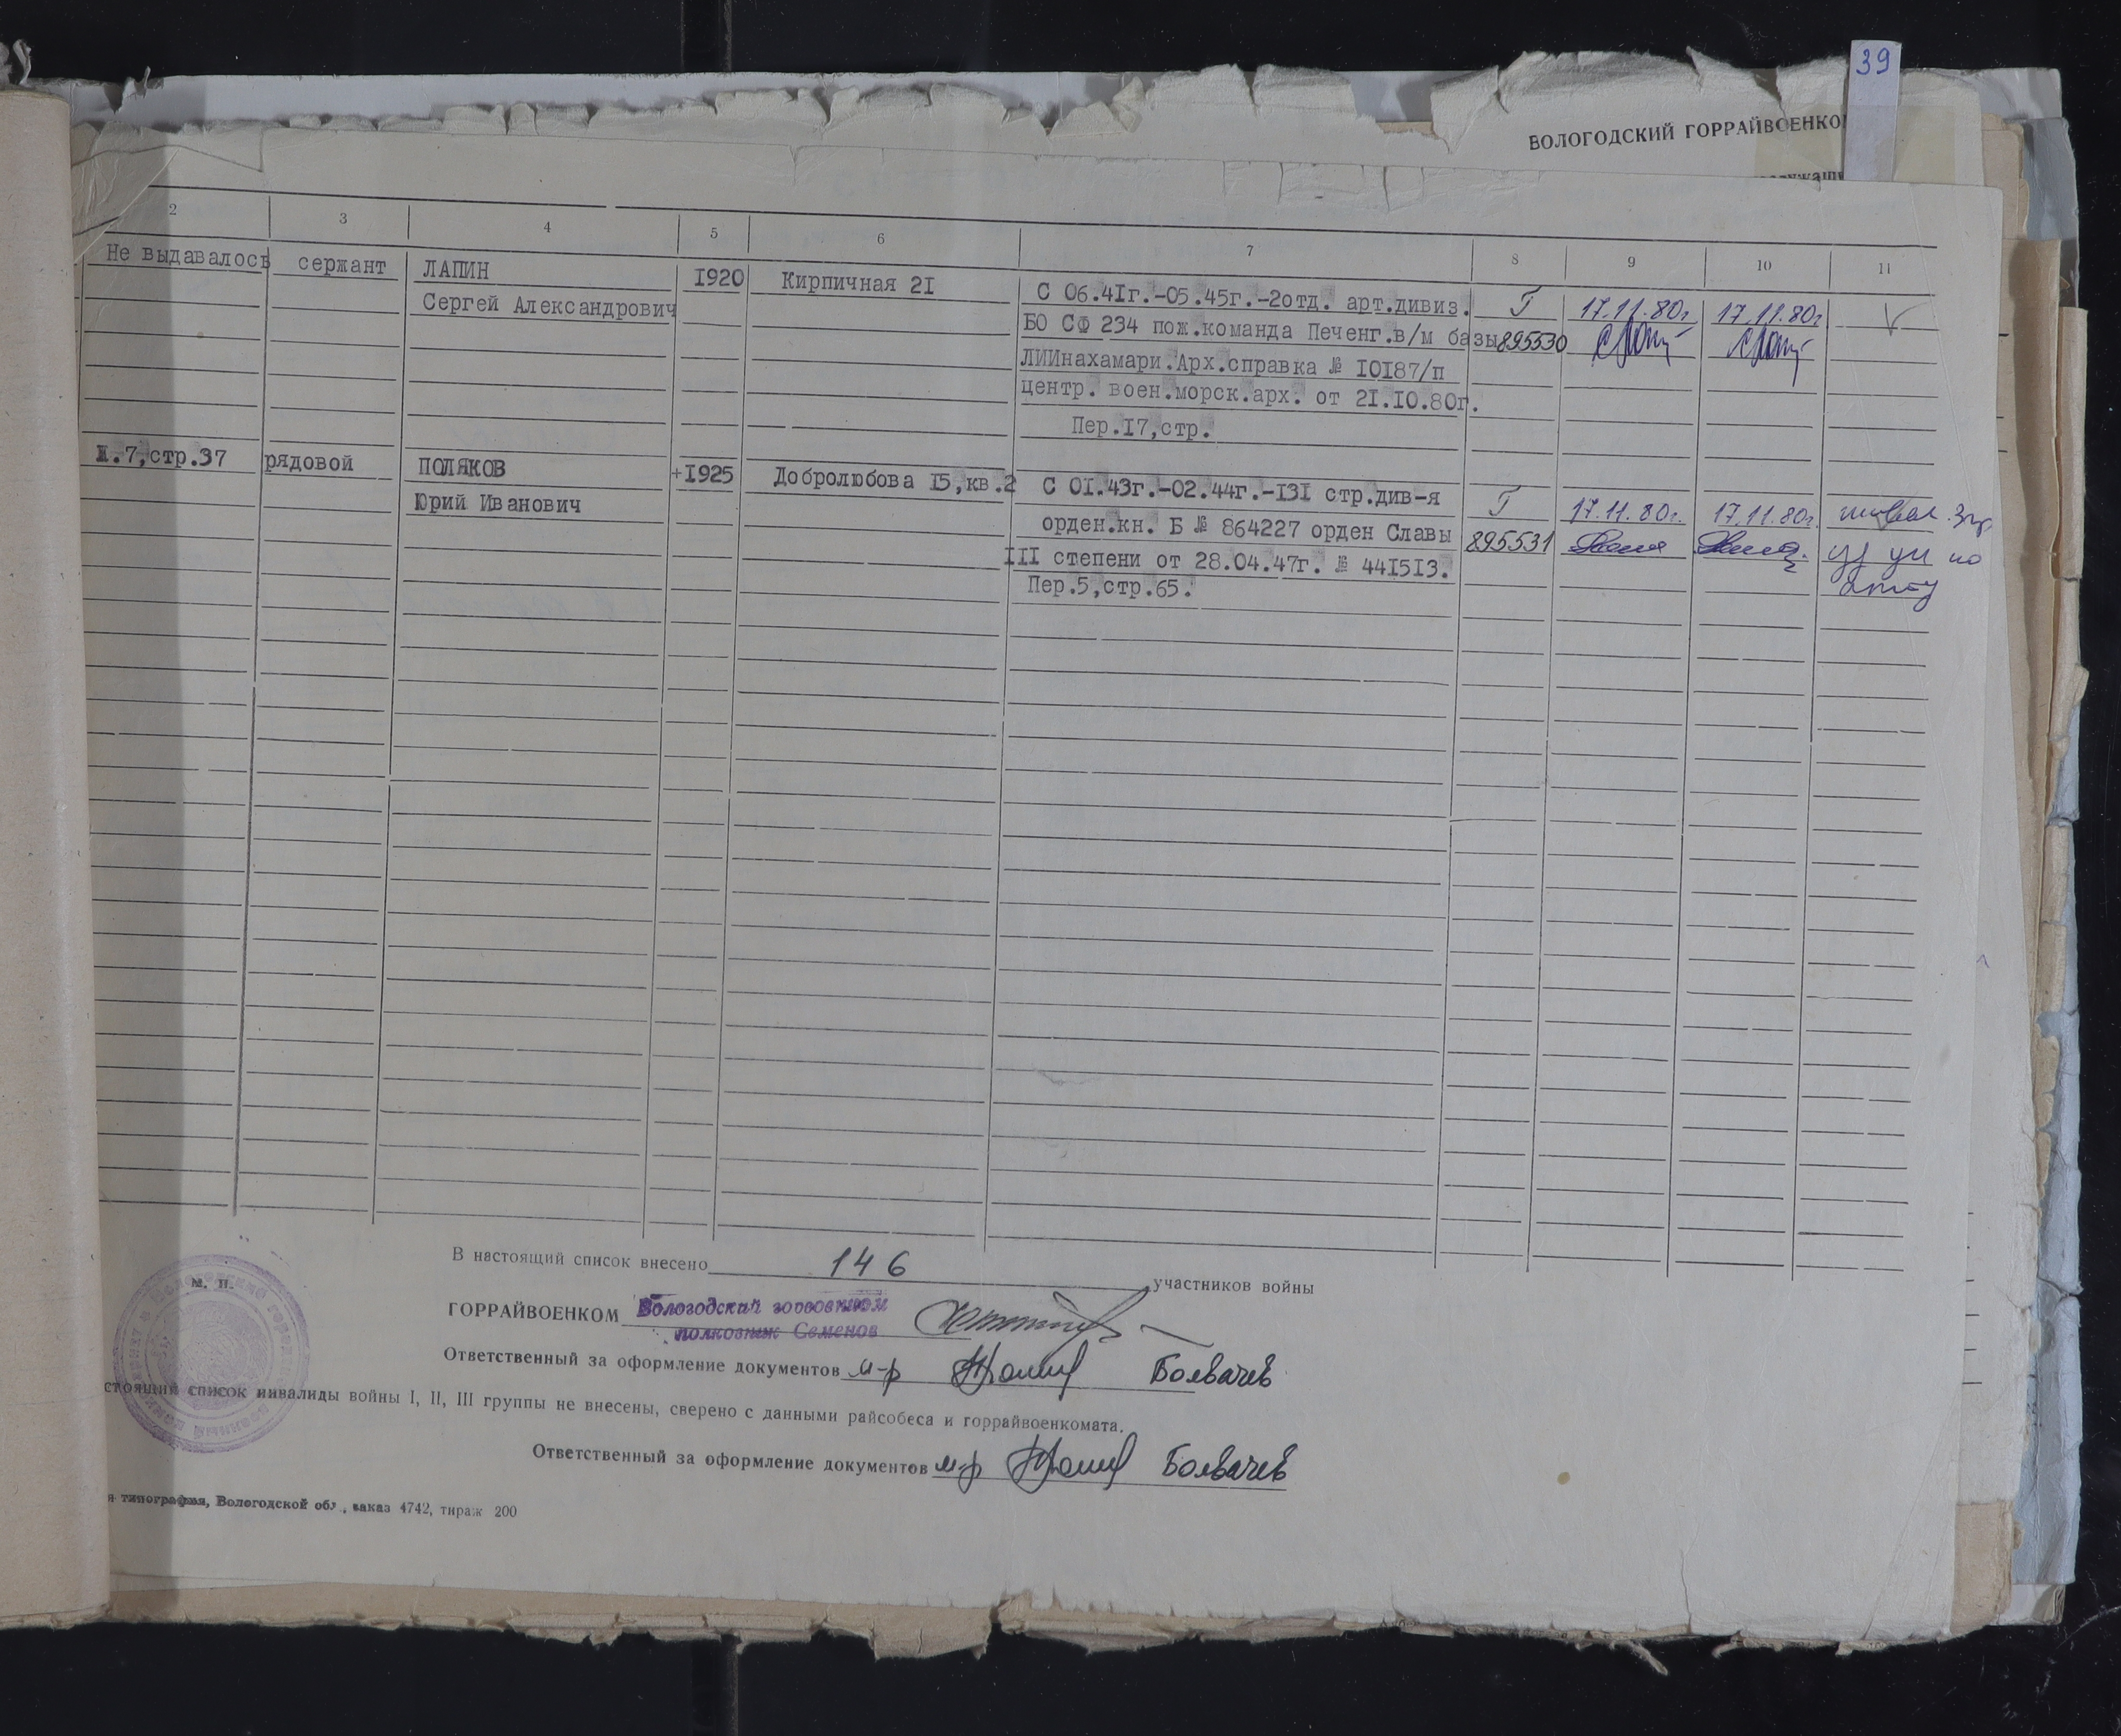 39
ВОЛОГОДСКИЙ ГОРРАЙВОЕНКО
2 3 4 5 6 7 8 9 10 11
Не выдавалось сержант ЛАПИН 1920 Кирпичная 21 С 06.41г.-05.45г.-2отд. арт.дивиз. Г 17.11.80г. 17.11.80г
Сергей Александрович БО СФ 234 пож.команда Печенг.в/м базы 895530
ЛИИнахамари.Арх.справка № 10187/п
центр. воен.морск.арх. от 21.10.80г.
Пер.17,стр.
.7,стр.37 рядовой ПОЛЯКОВ +1925 Добролюбова 15,кв.2 С 01.43г.-02.44г.-131 стр.див-я Г 17.11.80г. 17.11.80г.
Юрий Иванович орден.кн. Б № 864227 орден Славы 895531
III степени от 28.04.47г. № 441513.
Пер.5,стр.65.
В настоящий список внесено 146 участников войны
М. П.
ГОРРАЙВОЕНКОМ Вологодский горвоенком
полковник Семенов
Ответственный за оформление документов м-р Болвачев
стоящий список инвалиды войны I, II, III группы не внесены, сверено с данными райсобеса и горрайвоенкомата.
Ответственный за оформление документов м-р Болвачев
я типография, Вологодской обл., заказ 4742, тираж 200